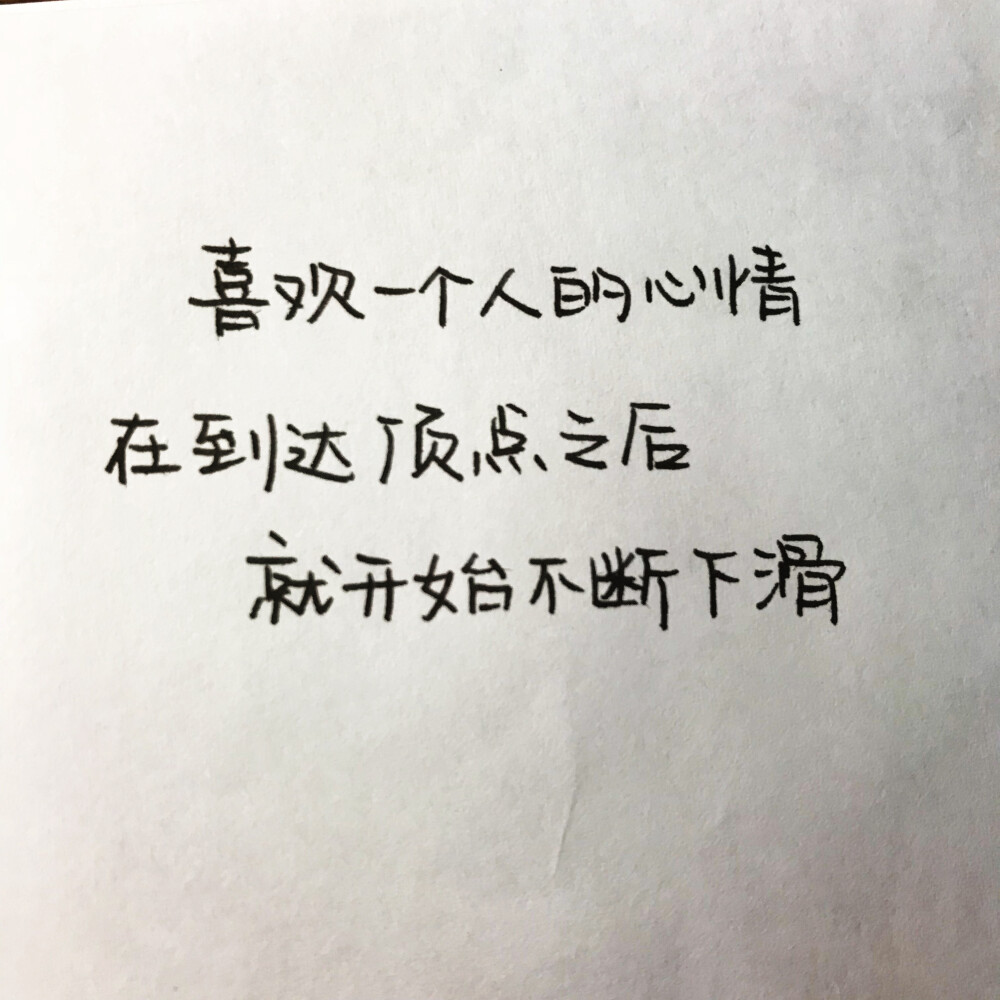 喜欢一个人的心情
在到达顶点之后
就开始不断下滑